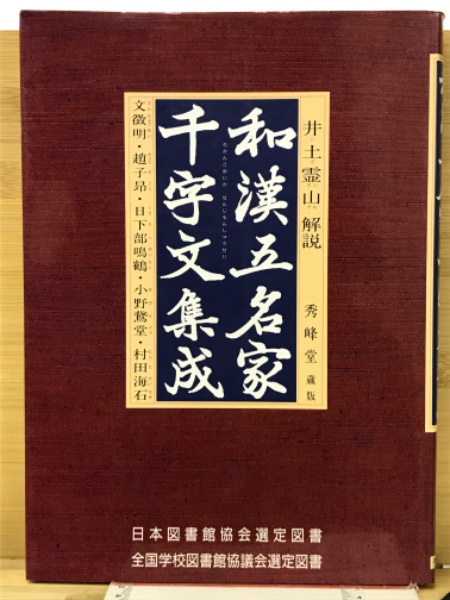 井土霊山 解説
秀峰堂 蔵版
和漢五名家
わかんごめいか せんじもんしゅうせい
千字文集成
文徴明・趙子昂・日下部鳴鶴・小野鵞堂・村田海石
日本図書館協会選定図書
全国学校図書館協議会選定図書